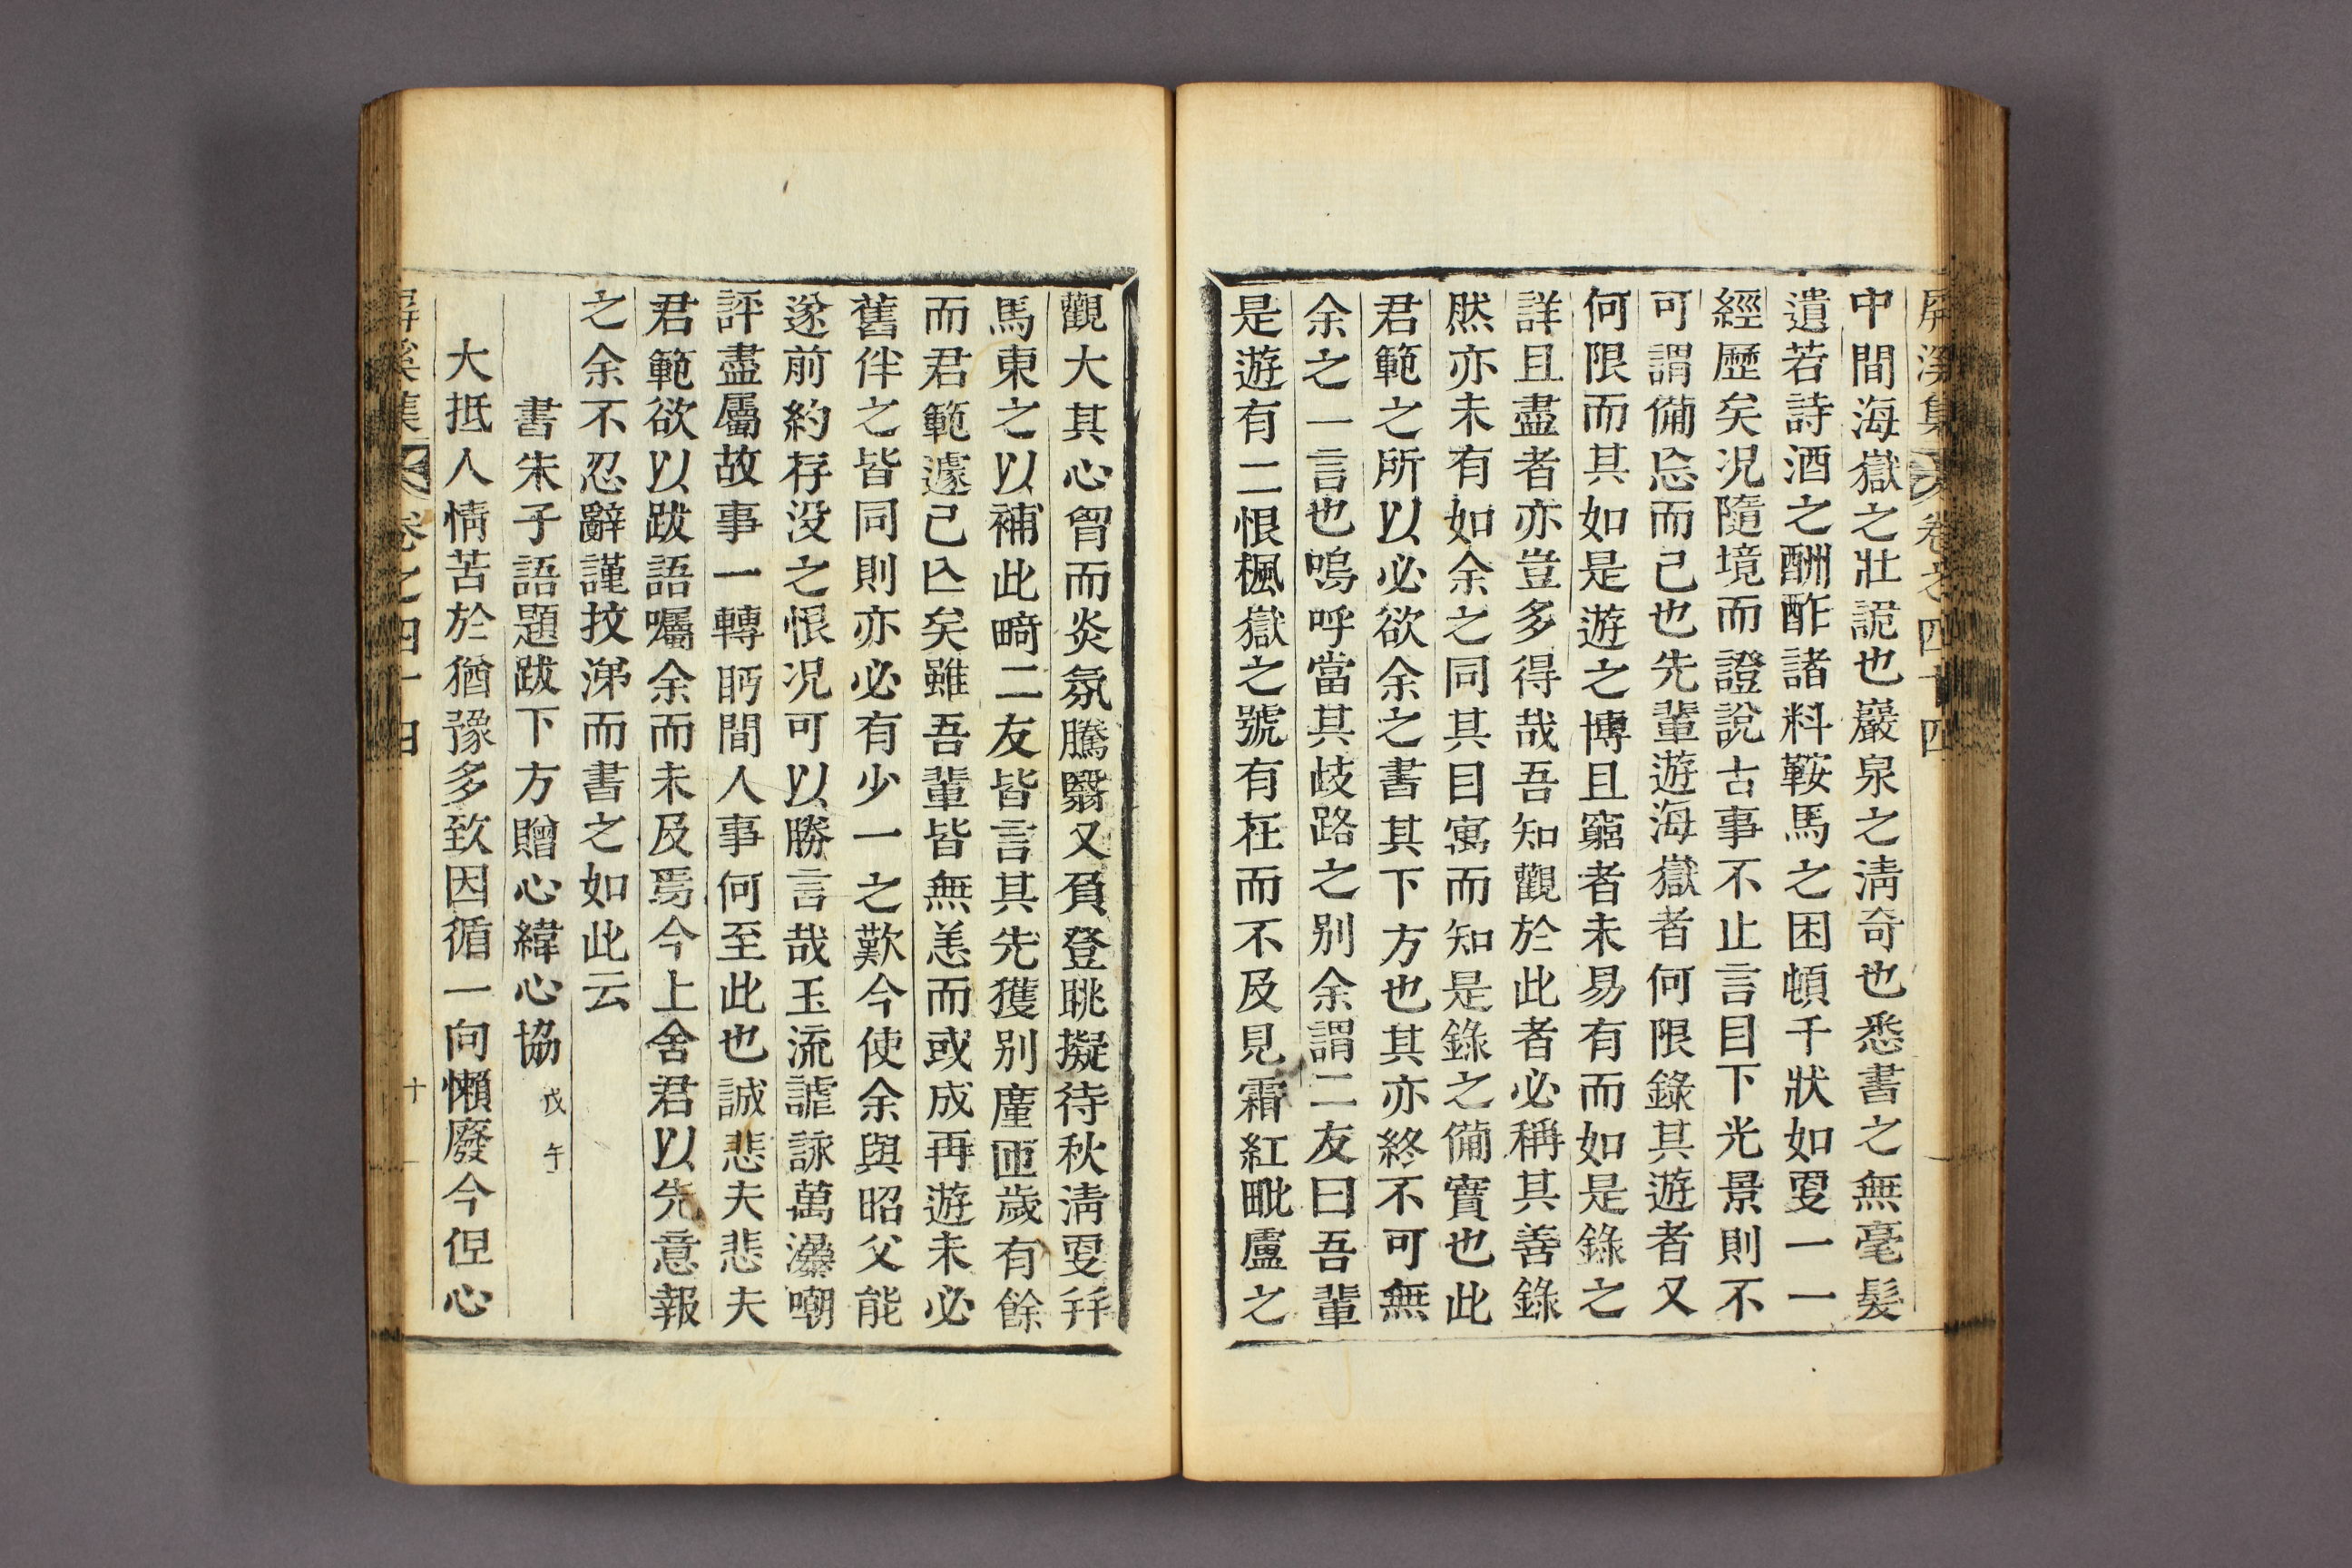 屛溪集 卷之四十四
中間海嶽之壯詭也巖泉之淸奇也悉書之無毫髮
遺若詩酒之酬酢諸料鞍馬之困頓千狀如更一一
經歷矣况隨境而證說古事不止言目下光景則不
可謂備忘而已也先輩遊海嶽者何限錄其遊者又
何限而其如是遊之博且窮者未易有而如是錄之
詳且盡者亦豈多得哉吾知觀於此者必稱其善錄
然亦未有如余之同其目寓而知是錄之備實也此
君範之所以必欲余之書其下方也其亦終不可無
余之一言也嗚呼當其歧路之別余謂二友曰吾輩
是遊有二恨楓嶽之號有在而不及見霜紅毗盧之
觀大其心胷而炎氛騰翳又負登眺擬待秋淸更秣
馬東之以補此畸二友皆言其先獲別廑匝歲有餘
而君範遽已亾矣雖吾輩皆無恙而或成再遊未必
舊伴之皆同則亦必有少一之歎今使余與昭父能
遂前約存没之恨况可以勝言哉玉流謔詠萬瀑嘲
評盡屬故事一轉眄間人事何至此也誠悲夫悲夫
君範欲以跋語囑余而未及焉今上舍君以先意報
之余不忍辭謹抆涕而書之如此云
書朱子語題跋下方贈心緯心協 戊午
大抵人情苦於猶豫多致因循一向懶廢今但心
屛溪集 卷之四十四 十一